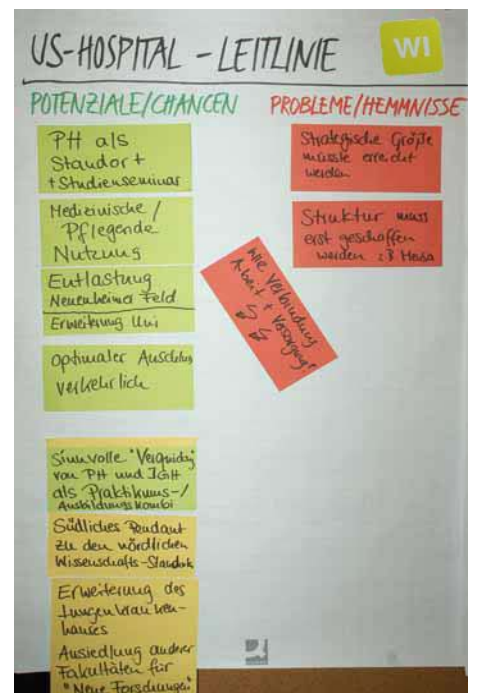 US-HOSPITAL - LEITLINIE
WI
POTENZIALE/CHANCEN
PROBLEME/HEMMNISSE
PH als
Standort
+Studienseminar
Medizinische /
Pflegende
Nutzung
Entlastung
Neuenheimer Feld
Erweiterung Uni
optimaler Anschluss
verkehrlich
Sinnvolle "Verquickg"
von PH und IGH
als Praktikums-/
Ausbildungskombi
Südliches Pendant
zu den nördlichen
Wissenschafts-Standort
Erweiterung des
Lungenkranken-
hauses
Ausiedlung anderer
Fakultäten für
"Neue Forschungen"
Strategische Größe
müsste erreicht
werden
Struktur muss
erst geschaffen
werden z.B. Mensa
Wie Verbindung
Arbeit + Versorgung?